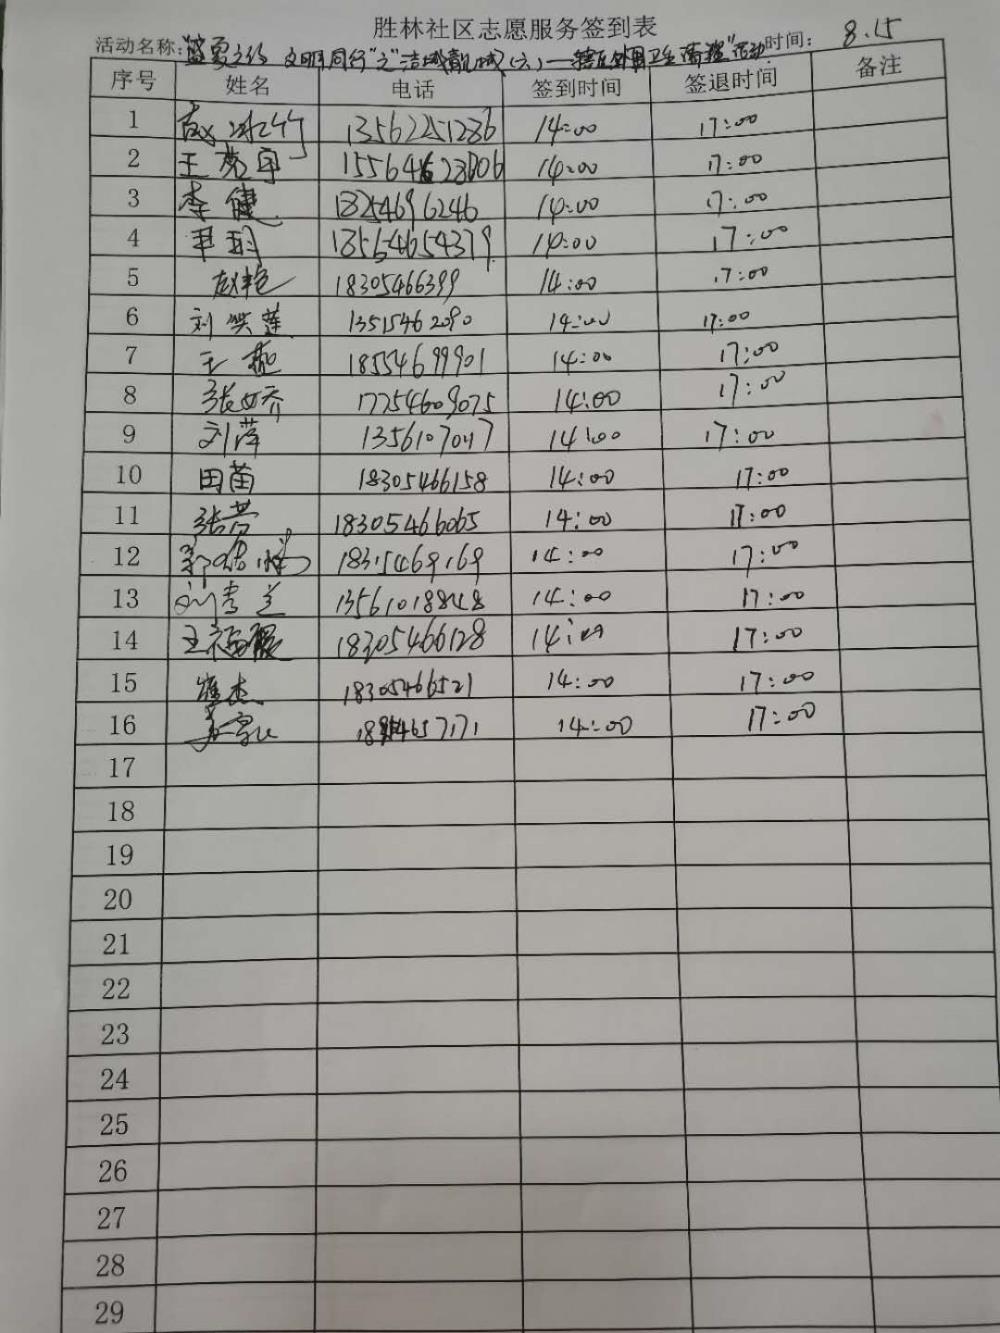 胜林社区志愿服务签到表
活动名称: 文明同行"之"洁城靓城(六)—辖区外围卫生清理"活动 时间: 8.15
序号 姓名 电话 签到时间 签退时间 备注
1 13562251286 14:00 17:00
2 王 14:00 17:00
3 李健 13254696246 14:00 17:00
4 13564654379 14:00 17:00
5 赵艳 18305466399 14:00 17:00
6 刘洪莲 13515462090 14:00 17:00
7 王 18554699901 14:00 17:00
8 张女乔 17254609075 14:00 17:00
9 刘萍 14:00 17:00
10 田苗 18305466158 14:00 17:00
11 张芳 18305466065 14:00 17:00
12 14:00 17:00
13 14:00 17:00
14 王福 18305466128 17:00
15 18305466521 14:00 17:00
16 14:00 17:00
17
18
19
20
21
22
23
24
25
26
27
28
29